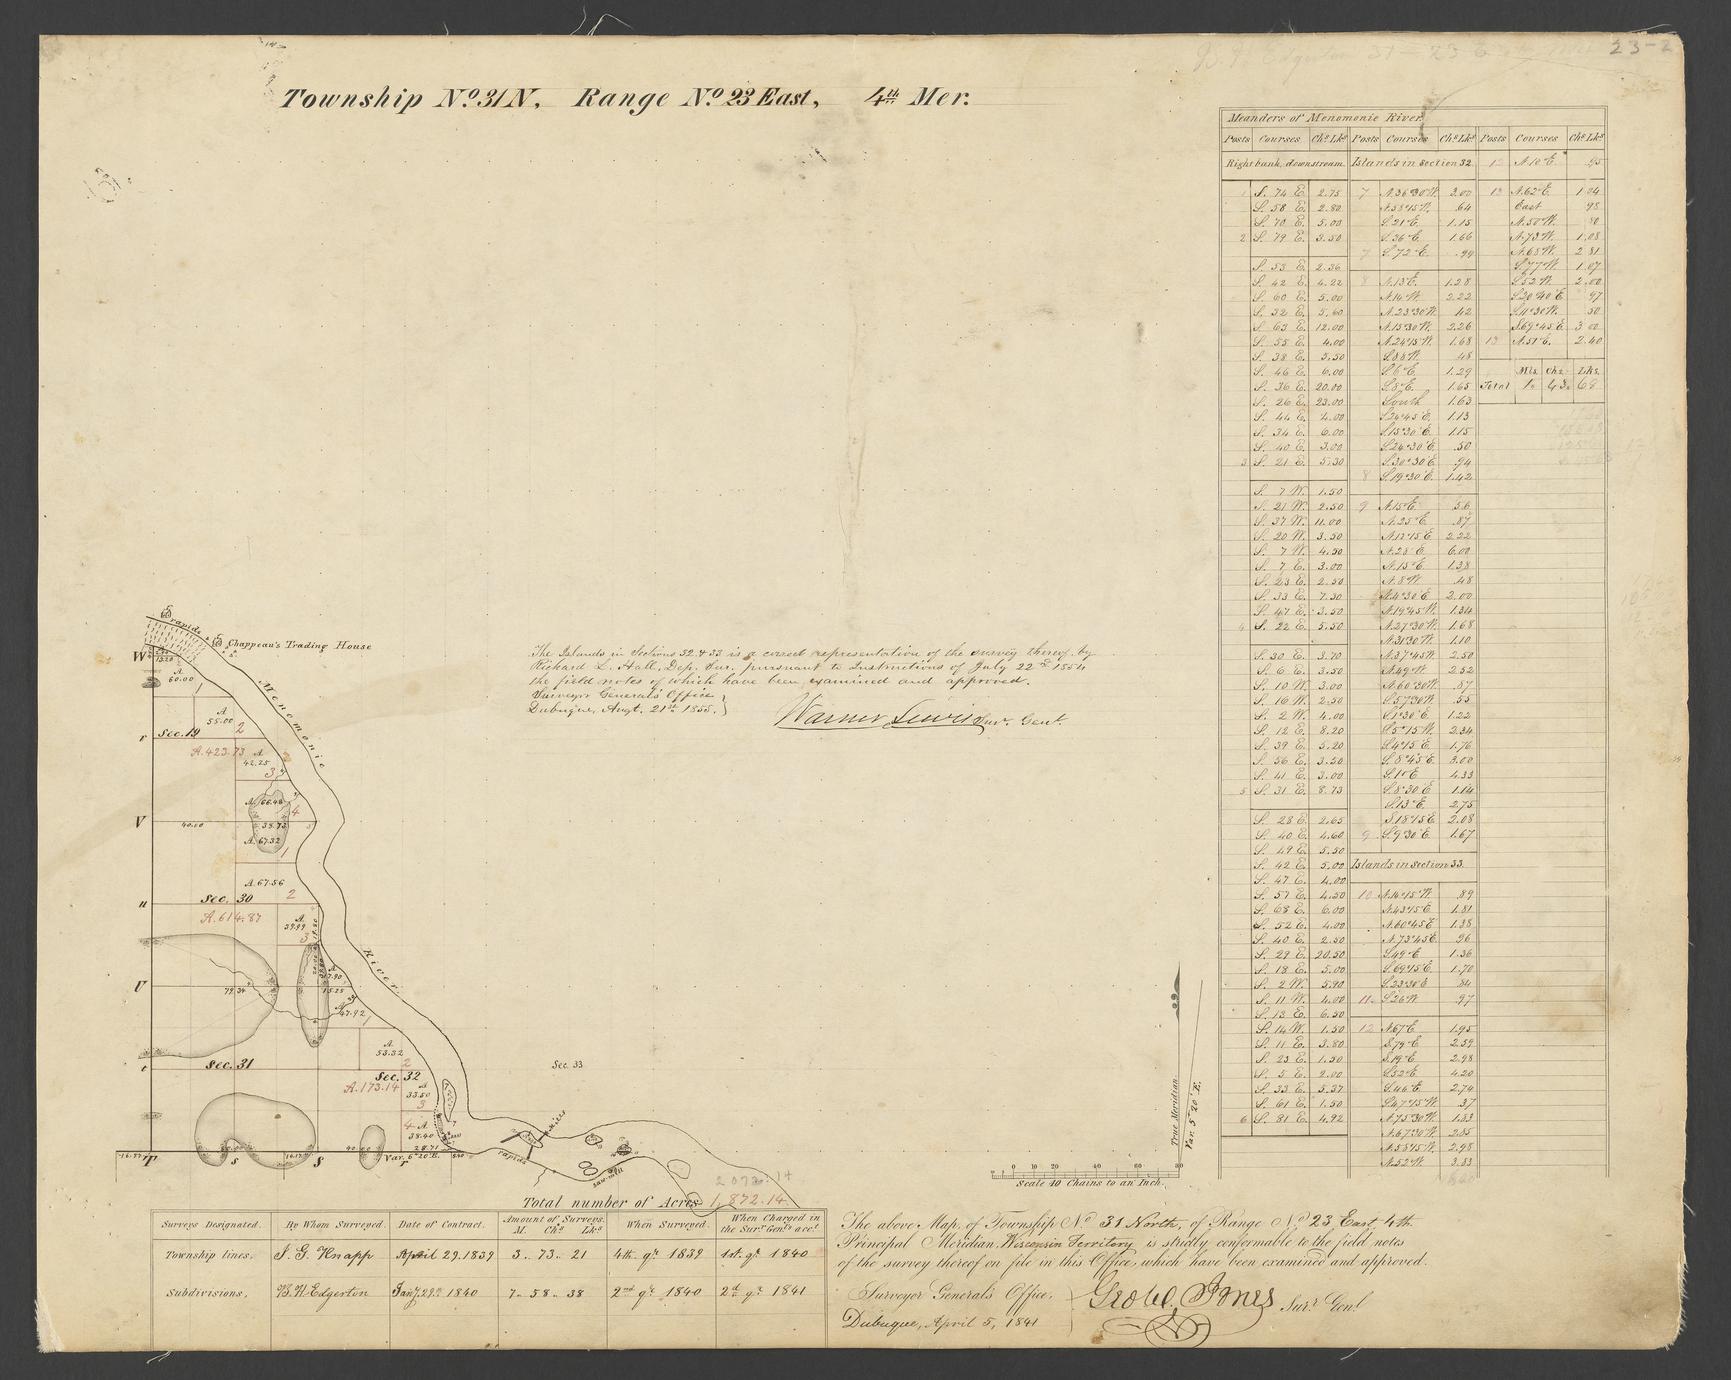 Township No. 31 N, Range No. 23 East, 4th Mer.
23-2
Meanders of Menomonie River.
Posts Courses Chs Lks Posts Courses Chs Lks Posts Courses Chs Lks
Right bank, downstream. Islands in Section 32 12 N.10°E. .95
1 S. 74 E. 2.75 7 N.36°30'W. 3.00 13 N.62°E. 1 04
S. 58 E. 2.80 N.53°15'W. .64 East 98
S. 70 E. 5.00 S.21°E. 1.15 N.50°W.
2 S. 79 E. 3.50 S.36°E. 1.66 N.73°W. 1.08
7 S.72°E. .99 N.68°W. 2 81
S. 53 E. 2.36 S.77°W. 1.07
S. 42 E. 4.22 8 N.13°E. 1.28 S.52°W. 2.00
S. 60 E. 5.00 N.14°W. 2.22 S.20°40'E. 97
S. 32 E. 5.60 N.23°30'W. .42 S.11°30'W. 50
S. 63 E. 12.00 N.15°30'W. 2.26 S.69°45'E. 3 00
S. 55 E. 4.00 N.24°15'W. 1.68 13 N.51°E. 2.40
S. 38 E. 5.50 S.88°W. .48
S. 46 E. 6.00 S.6°E. 1.29 Mls. Chs. Lks.
S. 36 E. 20.00 S.8°E. 1.65 Total 1. 43. 68
S. 26 E. 23.00 South 1.63
S. 44 E. 4.00 S.24°45'E. 1.13
S. 34 E. 6.00 S.15°30'E. 1.15
S. 40 E. 3.00 S.24°30'E. .50
3 S. 21 E. 5.30 S.30°30'E. .94
8 S.19°30'E. 1.42
S. 7 W. 1.50
S. 21 W. 2.50 9 N.15°E. 56
S. 37 W. 11.00 N.25°E. .87
S. 20 W. 3.50 N.12°15'E. 2.22
S. 7 W. 4.50 N.28°E. 6.00
S. 7 E. 3.00 N.15°E. 1.38
S. 23 E. 2.50 N.8°W. .48
S. 33 E. 7.30 N.4°30'E. 2.00
S. 47 E. 3.50 N.19°45'W. 1.34
4 S. 22 E. 5.50 N.27°30'W. 1.68
N.31°30'W. 1.10
S. 30 E. 3.70 N.37°45'W. 2.50
S. 6 E. 3.50 N.49°W. 2.52
S. 10 W. 3.00 N.60°30'W. .87
S. 16 W. 2.50 S.57°30'W. .55
S. 2 W. 4.00 S.1°30'E. 1.22
S. 12 E. 8.20 S.5°15'W. 2.34
S. 39 E. 5.20 S.4°15'E. 1.76
S. 56 E. 3.50 S.8°45'E. 3.00
S. 41 E. 3.00 S.1°E. 4.33
5 S. 31 E. 8.73 S.8°30'E. 1.14
S.13°E. 2.75
S. 28 E. 2.65 S.18°15'E. 2.08
S. 40 E. 4.60 9 S.9°30'E. 1.67
S. 49 E. 5.50
S. 42 E. 5.00 Islands in Section 33.
S. 47 E. 4.00
S. 57 E. 4.50 10 N.14°15'W. .89
S. 68 E. 6.00 N.43°15'E. 1.81
S. 52 E. 4.00 N.60°45'E. 1.38
S. 40 E. 2.50 N.73°45'E. 96
S. 29 E. 20.50 S.49°E. 1.36
S. 18 E. 5.00 S.69°15'E. 1.70
S. 2 W. 5.90 S.23°30'E. .84
S. 11 W. 4.00 11 S.26°W. .97
S. 13 E. 6.50
S. 14 W. 1.50 12 N.67°E. 1.95
S. 11 E. 3.80 S.79°E. 2.59
S. 23 E. 1.50 S.19°E. 2.98
S. 5 E. 2.00 S.52°E. 4.20
S. 33 E. 5.37 S.46°E. 2.74
S. 61 E. 1.50 S.47°15'W. .37
6 S. 81 E. 4.92 N.75°30'W. 1.33
N.67°30'W. 2.85
N.55°15'W. 2.98
N.52°W. 3.53
rapids
Chappeau's Trading House
W
A
60.00
1
Menomonie
A
55.00
2
Sec. 19
r
A. 423.73
A
42.25
3
A. 66.48
4
V
40.00
38.73
A. 67.32
1
A. 67.56
2
Sec. 30
u
A. 614.87
A.
39.99
3
River
U
79.34
15.25
A
47.92
1
A
53.32
2
Sec. 31
t
Sec. 32
A. 173.14
A
33.50
3
4
A
38.40
28.71
Sec. 33
T s S r
40.00
Var. 6°20'E.
Mills
rapids
saw-mill
The Islands in Sections 32 & 33 is a correct representation of the survey thereof by
Richard L. Hall, Dep. Sur. pursuant to Instructions of July 22nd 1854
the field notes of which have been examined and approved.
Surveyor General's Office
Dubuque, Augt. 21st 1855.
Warner Lewis Sur. Genl.
True Meridian.
Var. 5° 20' E.
0 10 20 30 40 50 60 70 80
Scale 40 Chains to an Inch.
2072.14
Total number of Acres 1,872.14
Surveys Designated. By Whom Surveyed. Date of Contract. Amount of Surveys. M. Chs Lks When Surveyed. When Charged in the Surr Genl's acct.
Township lines. J. G. Knapp April 29. 1839 3.. 73.. 21 4th qr 1839 1st qr 1840
Subdivisions. B. H. Edgerton Jany 29th 1840 7.. 58.. 38 2nd qr 1840 2d qr 1841
The above Map of Township No. 31 North, of Range No. 23 East, 4th
Principal Meridian, Wisconsin Territory is strictly conformable to the field notes
of the survey thereof on file in this Office, which have been examined and approved.
Surveyor General's Office,
Dubuque, April 5, 1841
Geo W. Jones Surr Genl